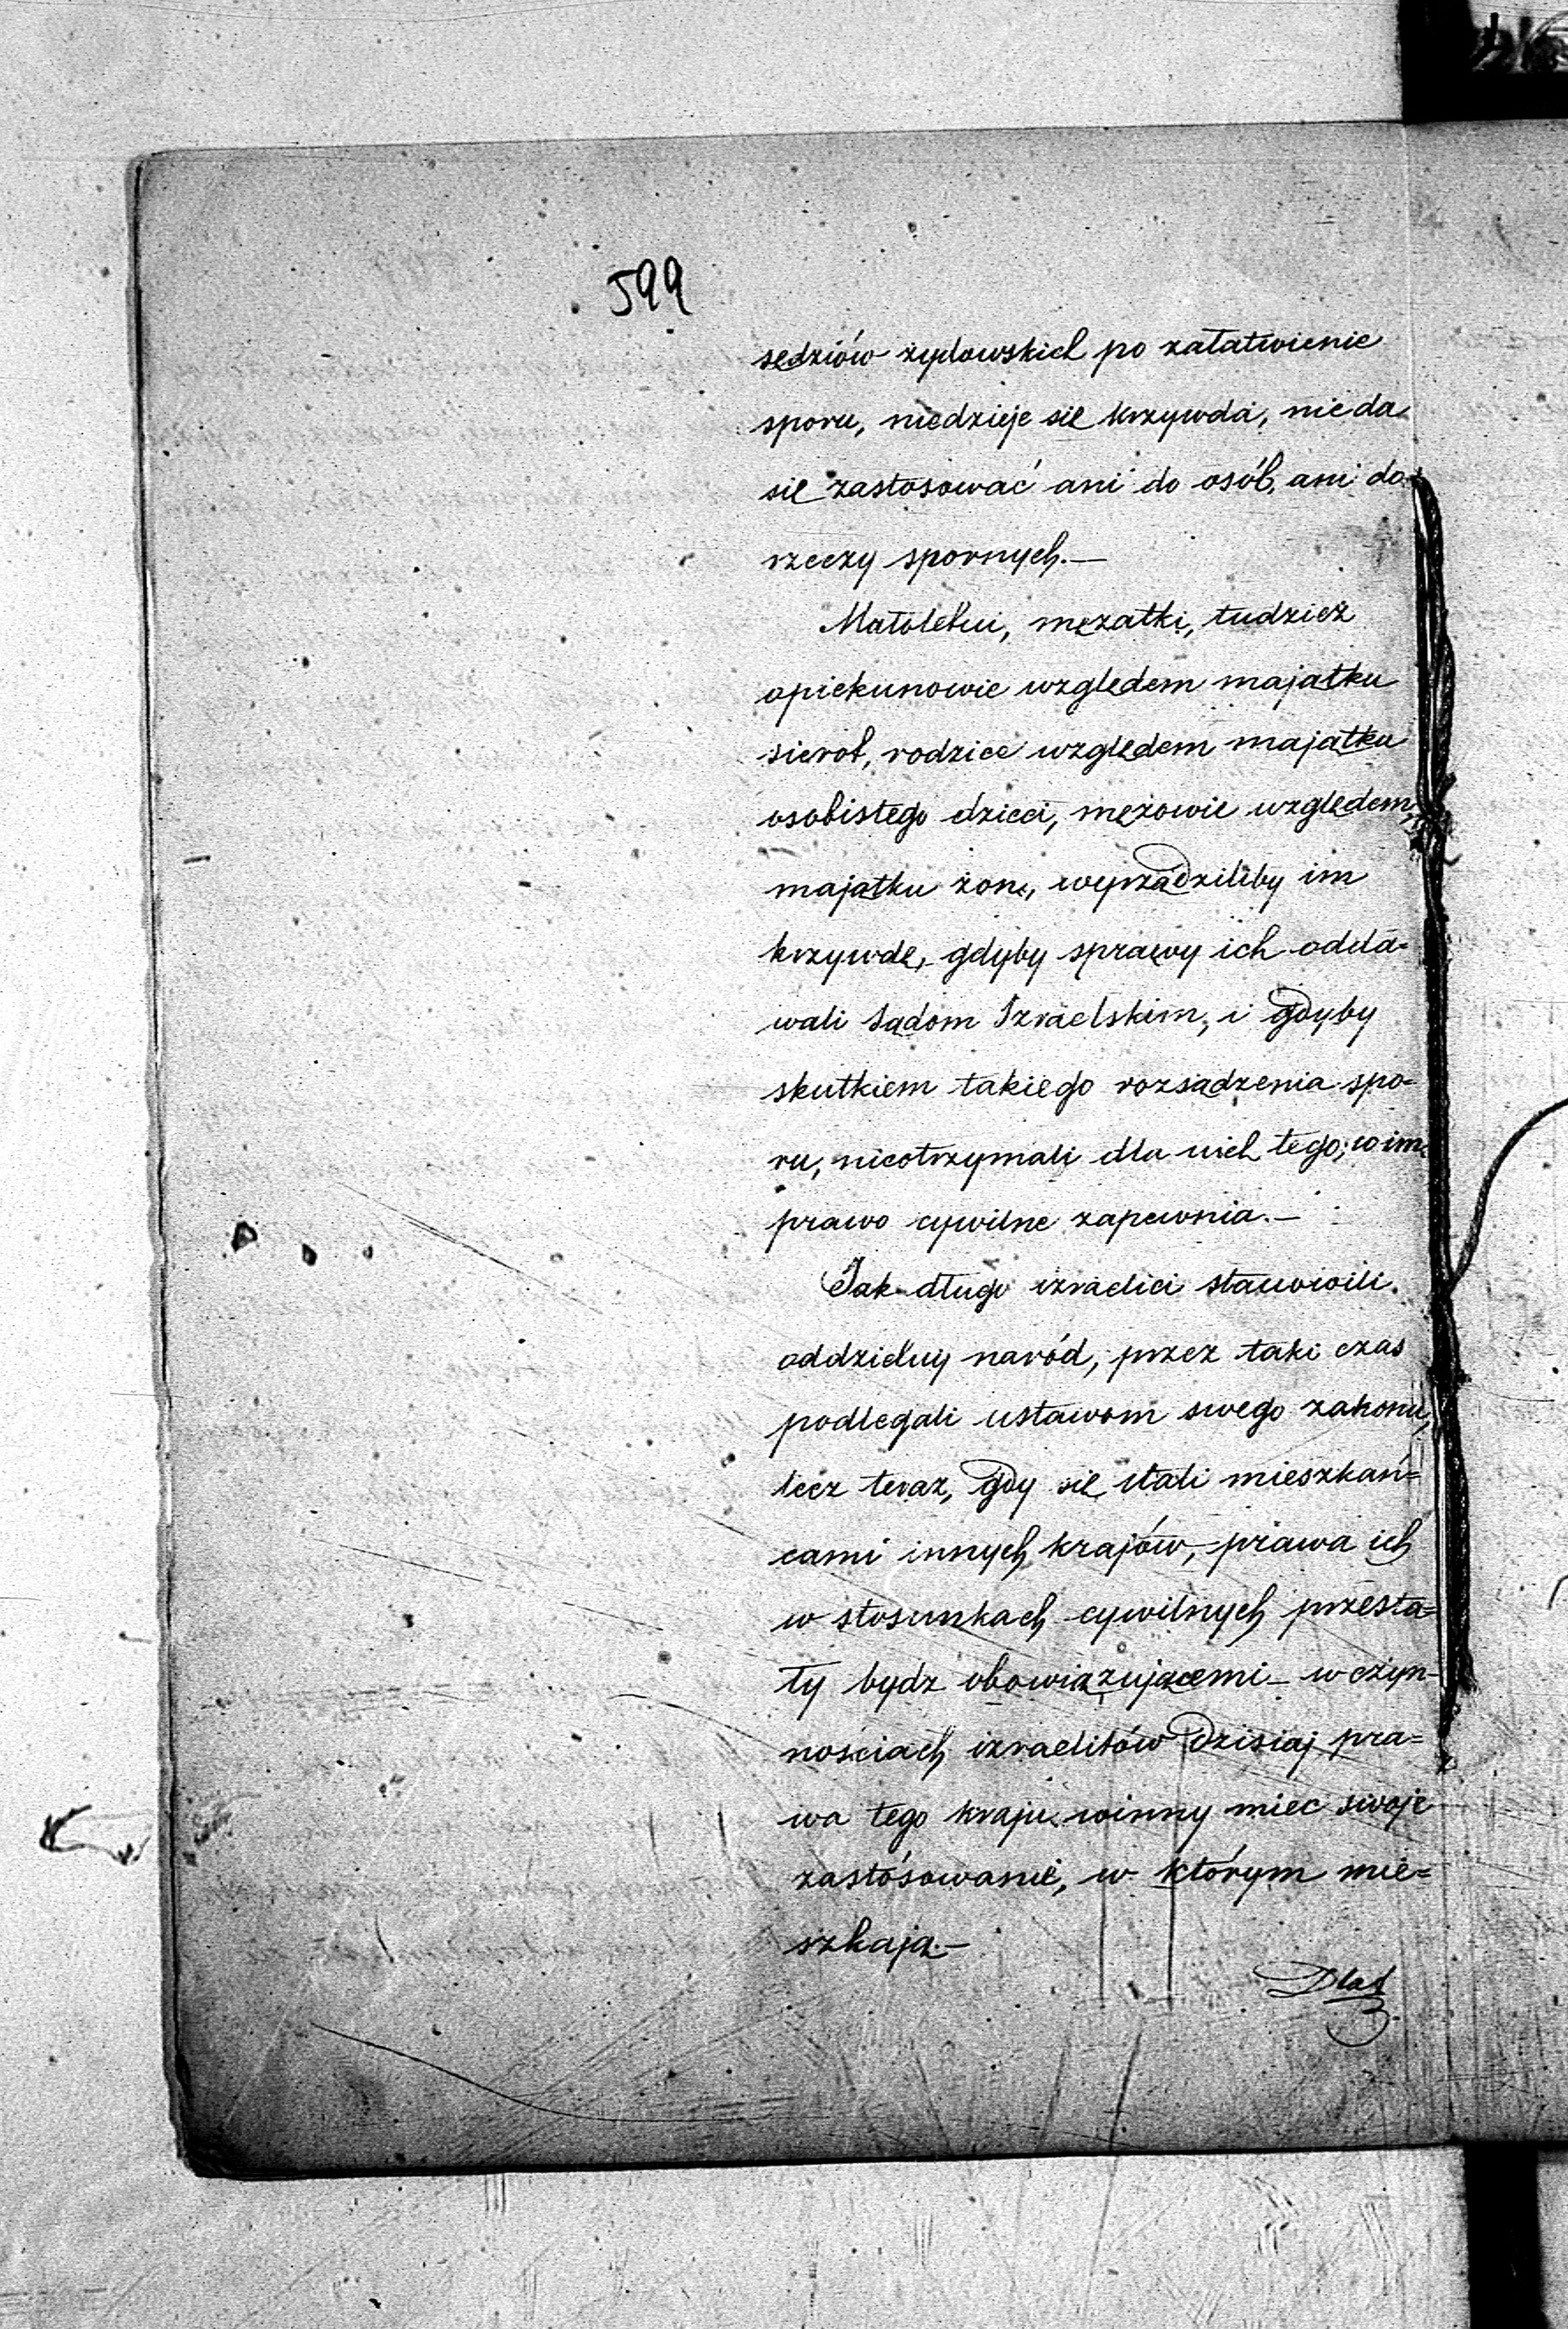 599
sędziów żydowskich po załatwienie
sporu, niedzieje się krzywda, nie da
się zastosować ani do osób, ani do
rzeczy spornych.—
Małoletni, mężatki, tudzież
opiekunowie względem majątku
sierot, rodzice względem majątku
osobistego dzieci, mężowie względem
majątku żon, wyrządziliby im
krzywdę, gdyby sprawy ich odda=
wali Sądom Izraelskim, i gdyby
skutkiem takiego rozsądzenia spo=
ru, nieotrzymali dla nich tego, co im
prawo cywilne zapewnia.—
Jak długo izraelici stanowili
oddzielny naród, przez taki czas
podlegali ustawom swego zakonu,
lecz teraz, gdy się stali mieszkań=
cami innych krajów, prawa ich
w stosunkach cywilnych przesta=
ły bydz obowiązującemi— w czyn=
nościach izraelitów dzisiaj pra=
wa tego kraju winny mieć swoje
zastósowanie, w którym mie=
szkają.—
Dla